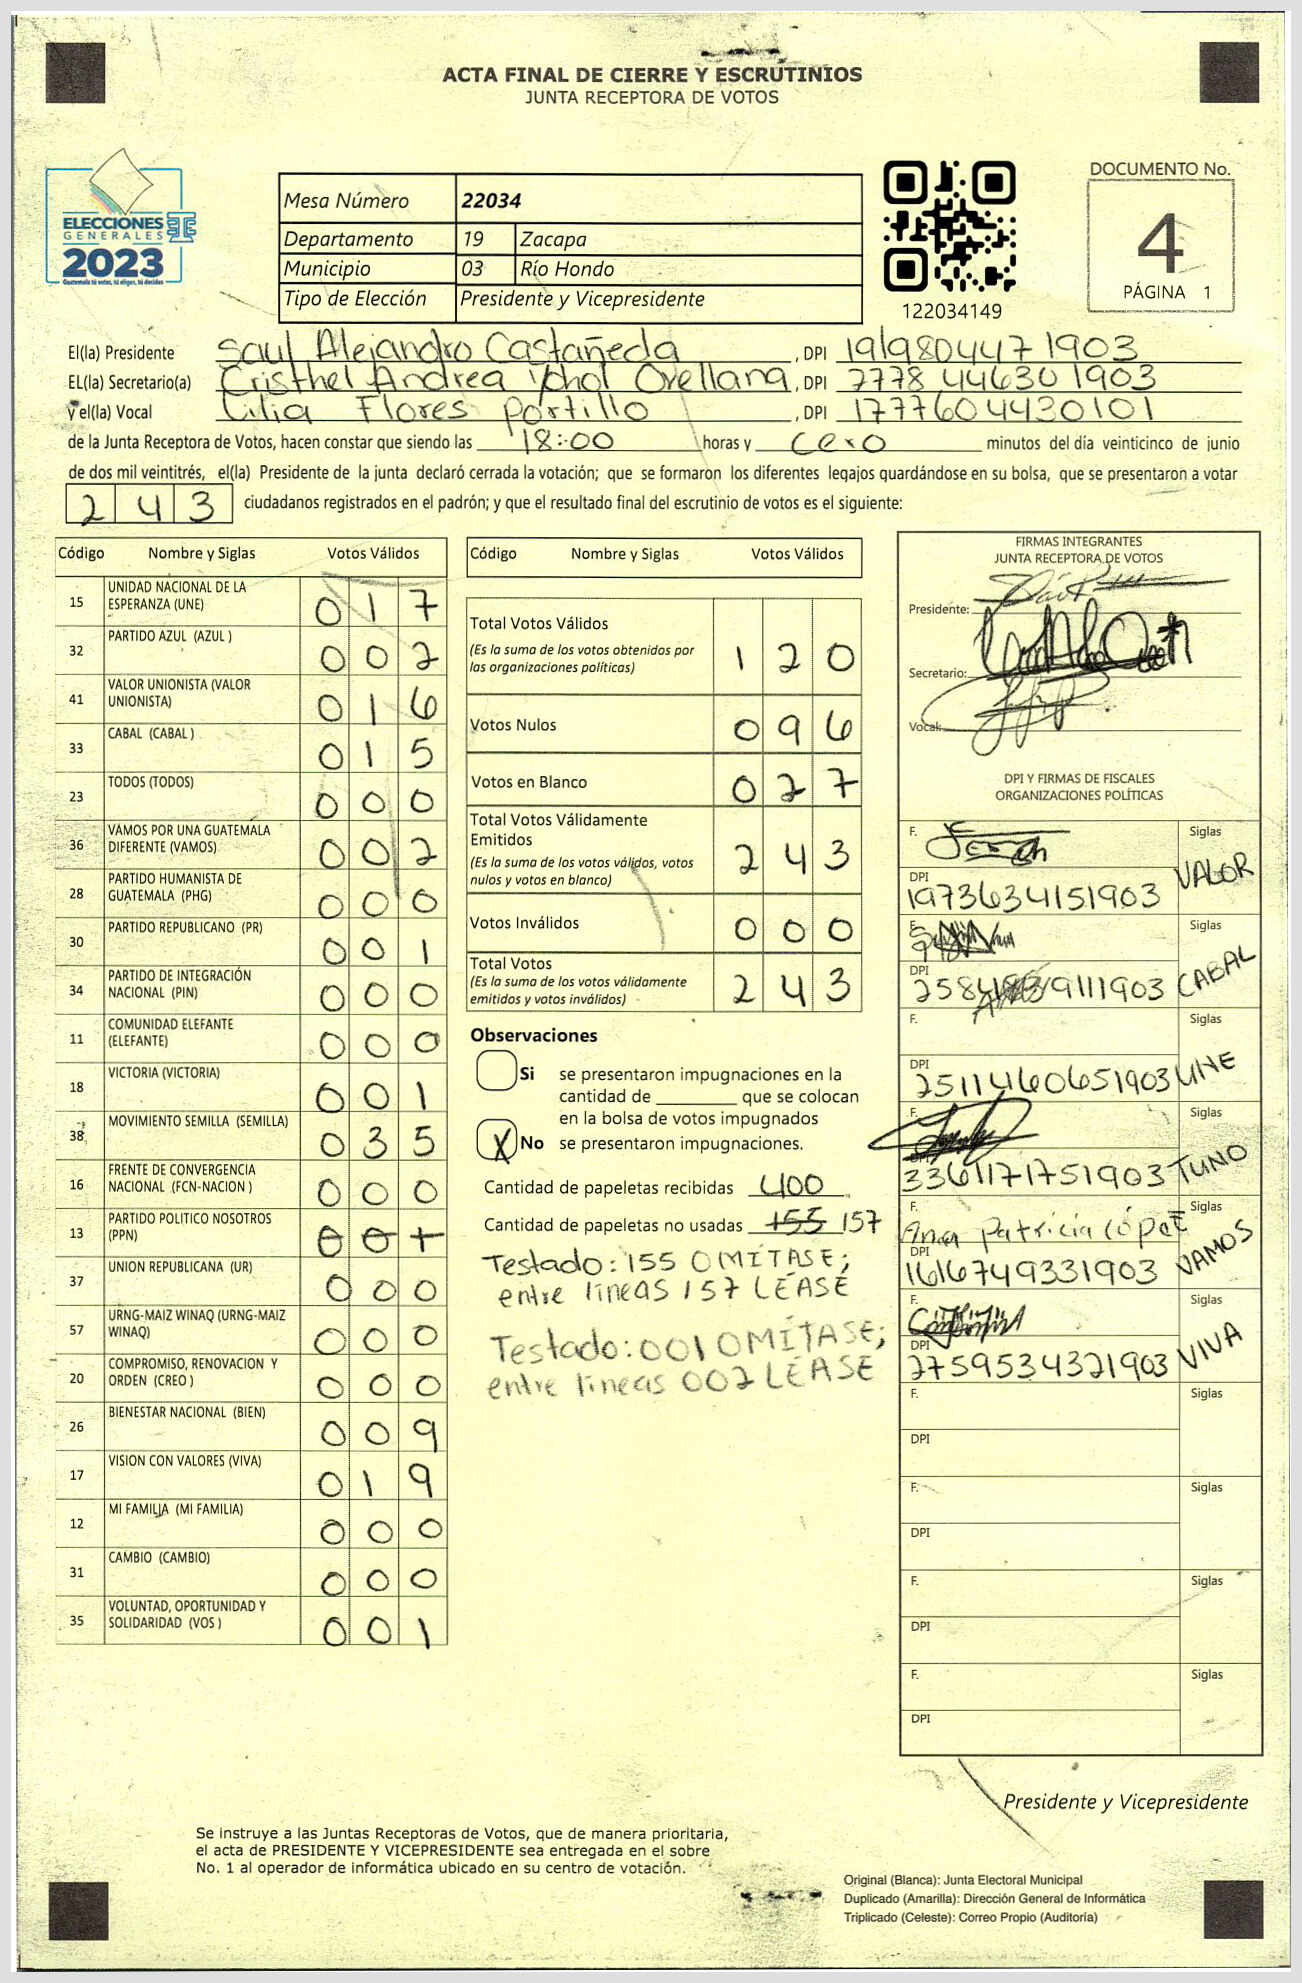 ACTA FINAL DE CIERRE Y ESCRUTINIOS
JUNTA RECEPTORA DE VOTOS
ELECCIONES
GENERALES
2023
Guatemala tú votas, tú eliges, tú decides
Mesa Número 22034
Departamento 19 Zacapa
Municipio 03 Río Hondo
Tipo de Elección Presidente y Vicepresidente
122034149
DOCUMENTO No.
4
PÁGINA 1
El(la) Presidente Saul Alejandro Castañeda, DPI 1919804471903
EL(la) Secretario(a) Cristhel Andrea Ichol Orellana, DPI 2778 446301903
y el(la) Vocal Lilia Flores Portillo, DPI 1777604430101
de la Junta Receptora de Votos, hacen constar que siendo las 18:00 horas y cero minutos del día veinticinco de junio
de dos mil veintitrés, el(la) Presidente de la junta declaró cerrada la votación; que se formaron los diferentes legajos quardándose en su bolsa, que se presentaron a votar
243 ciudadanos registrados en el padrón; y que el resultado final del escrutinio de votos es el siguiente:
Código Nombre y Siglas Votos Válidos
15 UNIDAD NACIONAL DE LA ESPERANZA (UNE) 017
32 PARTIDO AZUL (AZUL ) 002
41 VALOR UNIONISTA (VALOR UNIONISTA) 016
33 CABAL (CABAL ) 015
23 TODOS (TODOS) 000
36 VAMOS POR UNA GUATEMALA DIFERENTE (VAMOS) 002
28 PARTIDO HUMANISTA DE GUATEMALA (PHG) 000
30 PARTIDO REPUBLICANO (PR) 001
34 PARTIDO DE INTEGRACIÓN NACIONAL (PIN) 000
11 COMUNIDAD ELEFANTE (ELEFANTE) 000
18 VICTORIA (VICTORIA) 001
38 MOVIMIENTO SEMILLA (SEMILLA) 035
16 FRENTE DE CONVERGENCIA NACIONAL (FCN-NACION ) 000
13 PARTIDO POLITICO NOSOTROS (PPN) 001
37 UNION REPUBLICANA (UR) 000
57 URNG-MAIZ WINAQ (URNG-MAIZ WINAQ) 000
20 COMPROMISO, RENOVACION Y ORDEN (CREO ) 000
26 BIENESTAR NACIONAL (BIEN) 009
17 VISION CON VALORES (VIVA) 019
12 MI FAMILIA (MI FAMILIA) 000
31 CAMBIO (CAMBIO) 000
35 VOLUNTAD, OPORTUNIDAD Y SOLIDARIDAD (VOS ) 001
Código Nombre y Siglas Votos Válidos
Total Votos Válidos 120
(Es la suma de los votos obtenidos por
las organizaciones políticas)
Votos Nulos 096
Votos en Blanco 027
Total Votos Válidamente
Emitidos 243
(Es la suma de los votos válidos, votos
nulos y votos en blanco)
Votos Inválidos 000
Total Votos 243
(Es la suma de los votos válidamente
emitidos y votos inválidos)
Observaciones
Si se presentaron impugnaciones en la
cantidad de ________ que se colocan
en la bolsa de votos impugnados
X No se presentaron impugnaciones.
Cantidad de papeletas recibidas 400
Cantidad de papeletas no usadas 155 157
Testado: 155 OMÍTASE;
entre líneas 157 LÉASE
Testado: 001 OMÍTASE;
entre líneas 002 LÉASE
FIRMAS INTEGRANTES
JUNTA RECEPTORA DE VOTOS
Presidente:
Secretario:
Vocal:
DPI Y FIRMAS DE FISCALES
ORGANIZACIONES POLÍTICAS
F. Siglas
DPI 1973634151903 VALOR
F. Siglas
DPI CABAL
F. Siglas
DPI 2511460651903 UNE
F. Siglas
DPI 3361171751903 TUNO
F. Ana Patricia López Siglas
DPI 1616749331903 VAMOS
F. Siglas
DPI 2759534321903 VIVA
F. Siglas
DPI
F. Siglas
DPI
F. Siglas
DPI
F. Siglas
DPI
Presidente y Vicepresidente
Se instruye a las Juntas Receptoras de Votos, que de manera prioritaria,
el acta de PRESIDENTE Y VICEPRESIDENTE sea entregada en el sobre
No. 1 al operador de informática ubicado en su centro de votación.
Original (Blanca): Junta Electoral Municipal
Duplicado (Amarilla): Dirección General de Informática
Triplicado (Celeste): Correo Propio (Auditoría)